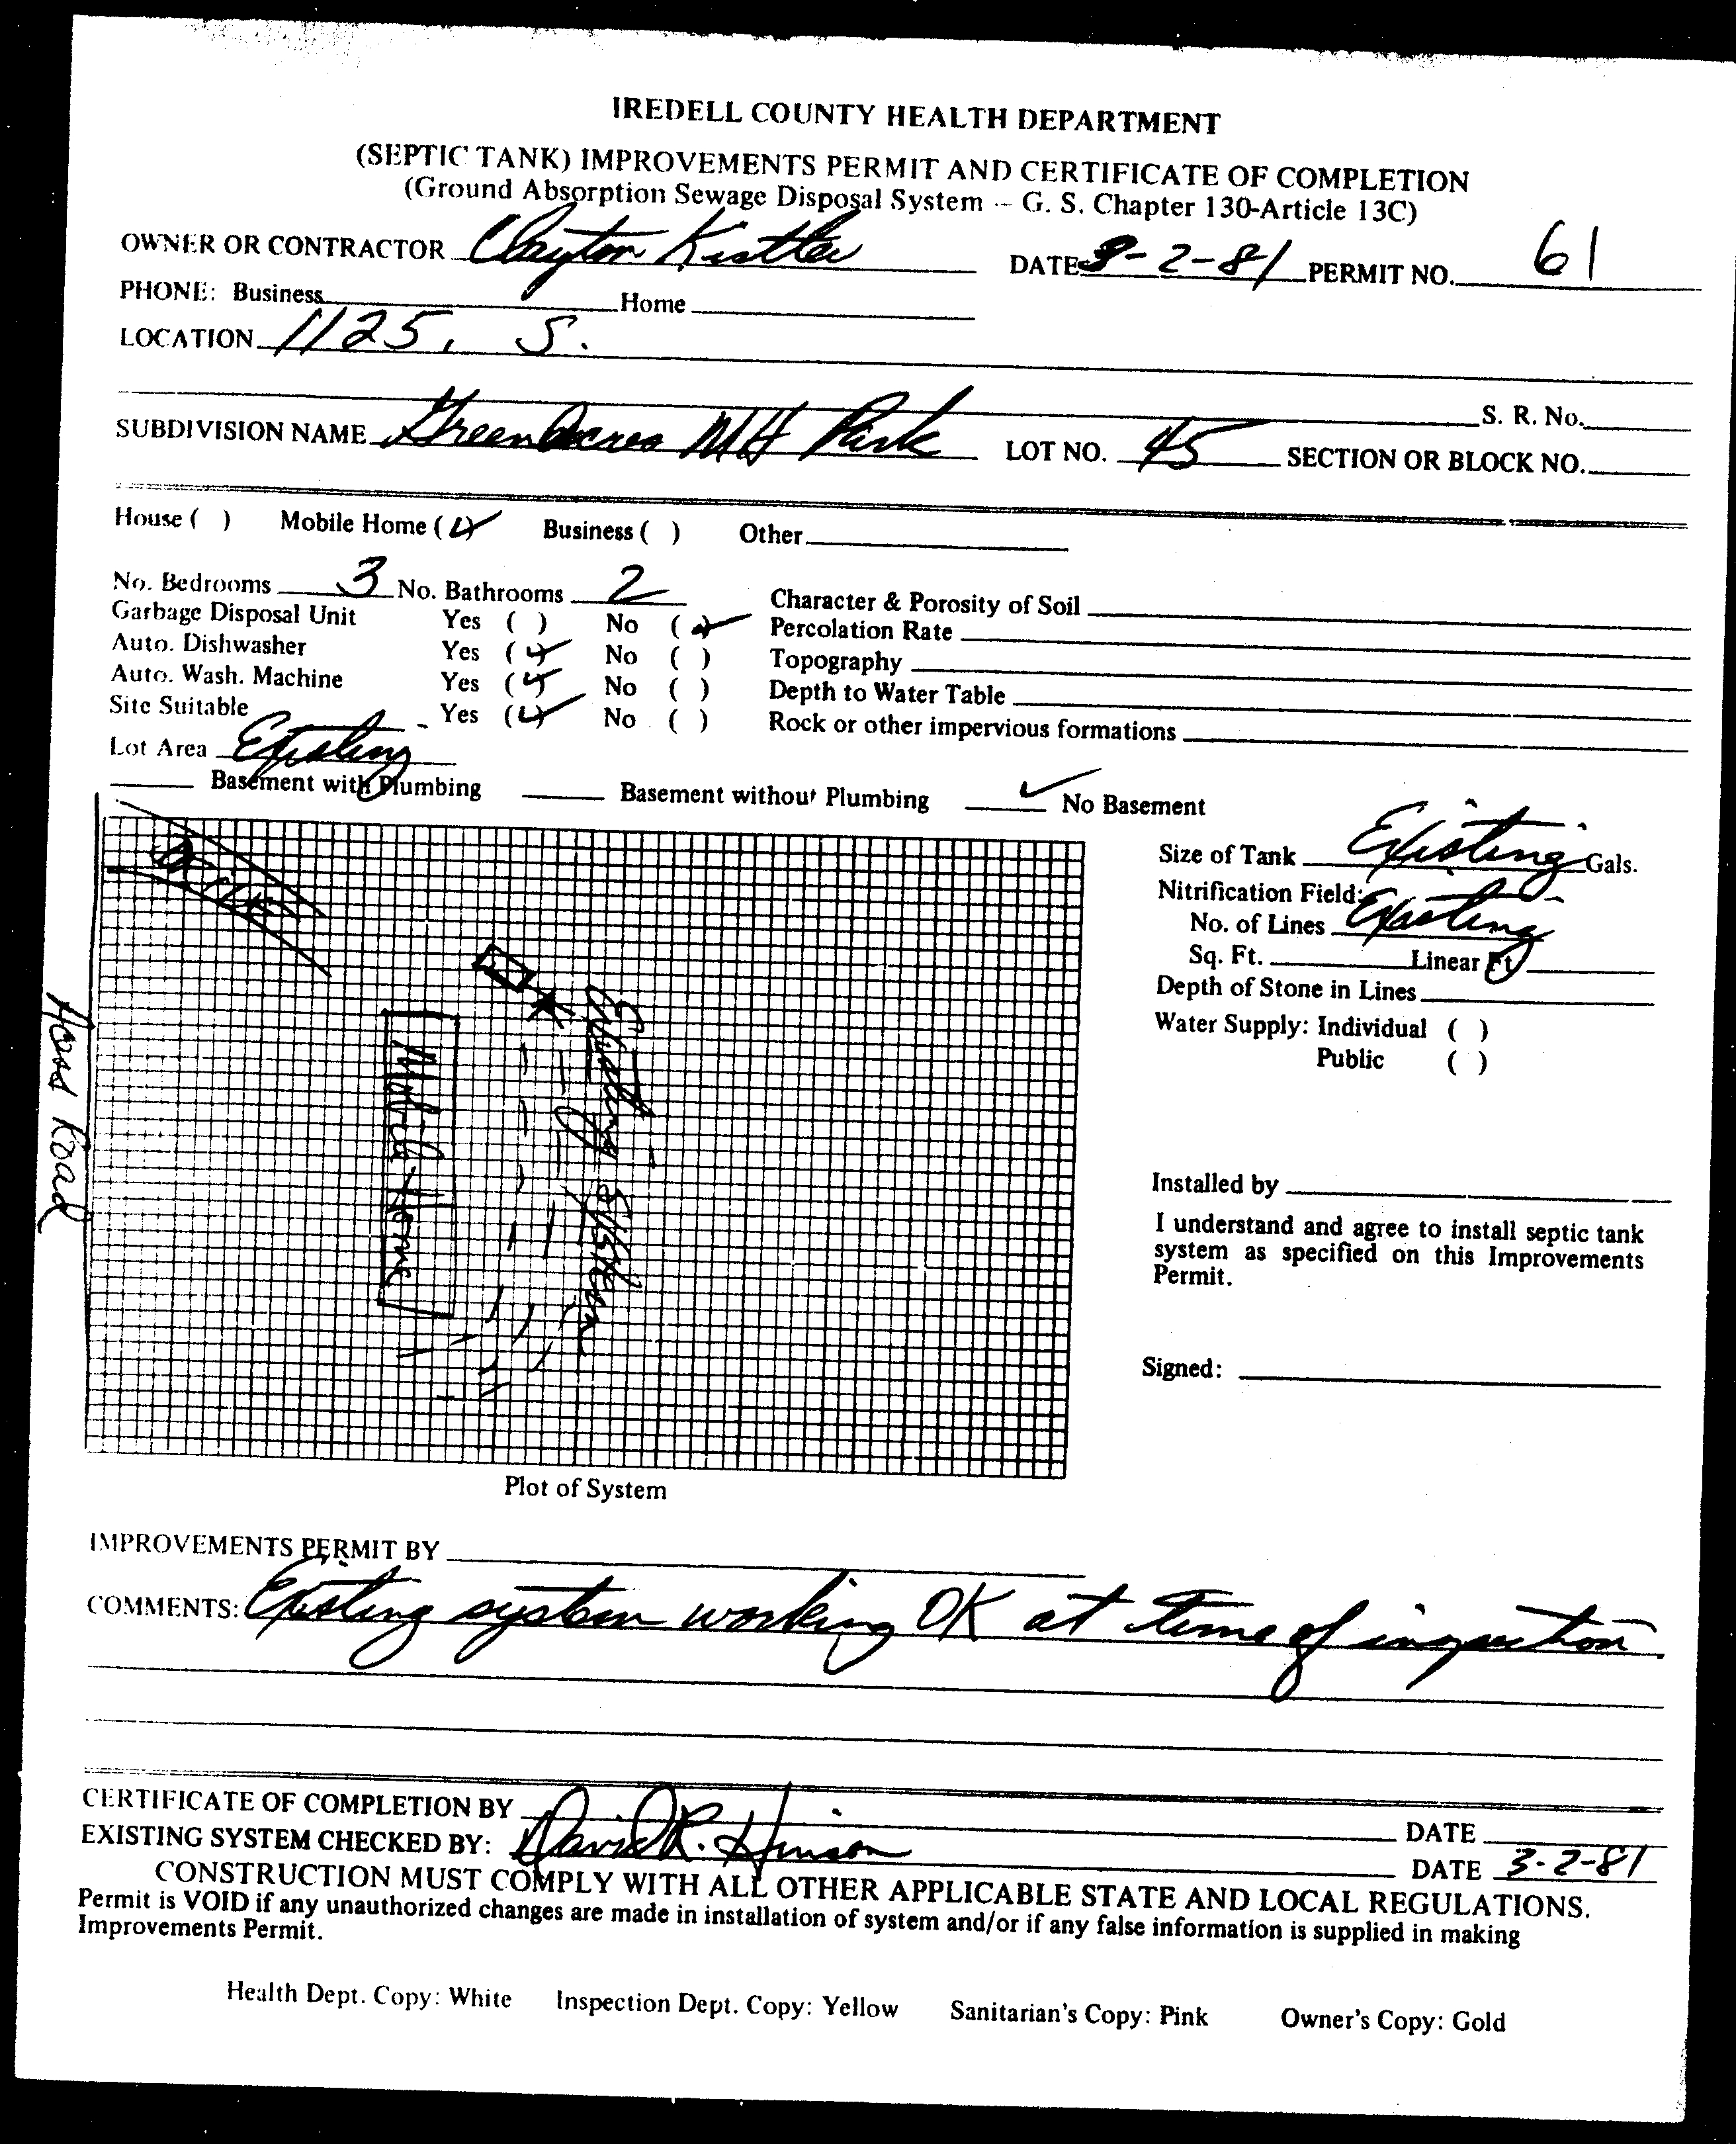 IREDELL COUNTY HEALTH DEPARTMENT
(SEPTIC TANK) IMPROVEMENTS PERMIT AND CERTIFICATE OF COMPLETION
(Ground Absorption Sewage Disposal System -- G. S. Chapter 130-Article 13C)
OWNER OR CONTRACTOR Clayton Kistler DATE 3-2-81 PERMIT NO. 61
PHONE: Business Home
LOCATION 1125, S.
S. R. No.
SUBDIVISION NAME Green Acres MH Park LOT NO. 45 SECTION OR BLOCK NO.
House ( ) Mobile Home (✓) Business ( ) Other
No. Bedrooms 3 No. Bathrooms 2 Character & Porosity of Soil
Garbage Disposal Unit Yes ( ) No (✓) Percolation Rate
Auto. Dishwasher Yes (✓) No ( ) Topography
Auto. Wash. Machine Yes (✓) No ( ) Depth to Water Table
Site Suitable Yes (✓) No ( ) Rock or other impervious formations
Lot Area Existing
Basement with Plumbing Basement without Plumbing ✓ No Basement
Size of Tank Existing Gals.
Nitrification Field:
No. of Lines Existing
Sq. Ft. Linear Ft.
Depth of Stone in Lines
Water Supply: Individual ( )
Public ( )
Drive
Existing System
Mobile Home
Road
Installed by
I understand and agree to install septic tank
system as specified on this Improvements
Permit.
Signed:
Plot of System
IMPROVEMENTS PERMIT BY
COMMENTS: Existing system working OK at time of inspection.
CERTIFICATE OF COMPLETION BY DATE
EXISTING SYSTEM CHECKED BY: David R. Hinson DATE 3-2-81
CONSTRUCTION MUST COMPLY WITH ALL OTHER APPLICABLE STATE AND LOCAL REGULATIONS.
Permit is VOID if any unauthorized changes are made in installation of system and/or if any false information is supplied in making
Improvements Permit.
Health Dept. Copy: White Inspection Dept. Copy: Yellow Sanitarian's Copy: Pink Owner's Copy: Gold